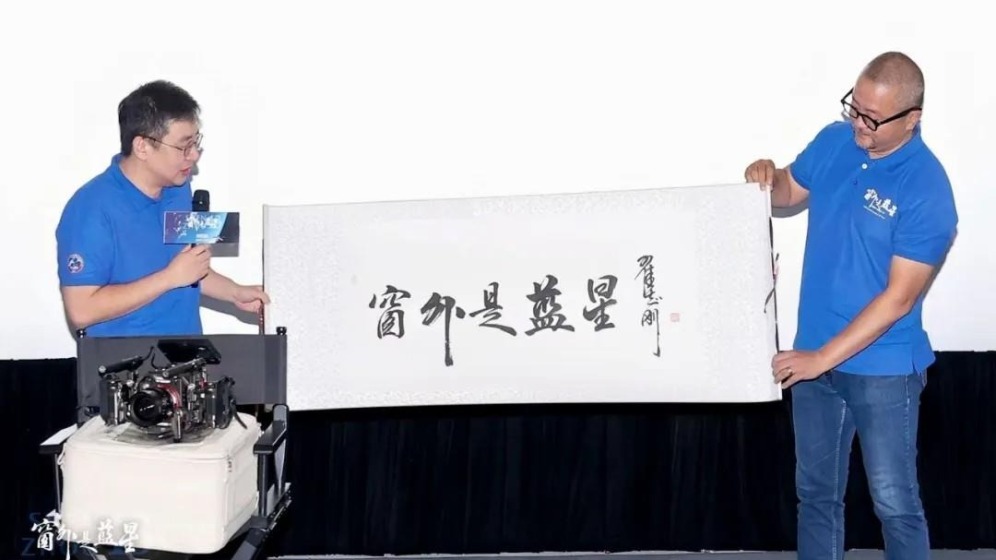 窗外是蓝星
翟志刚
窗外是蓝星
窗外是蓝星